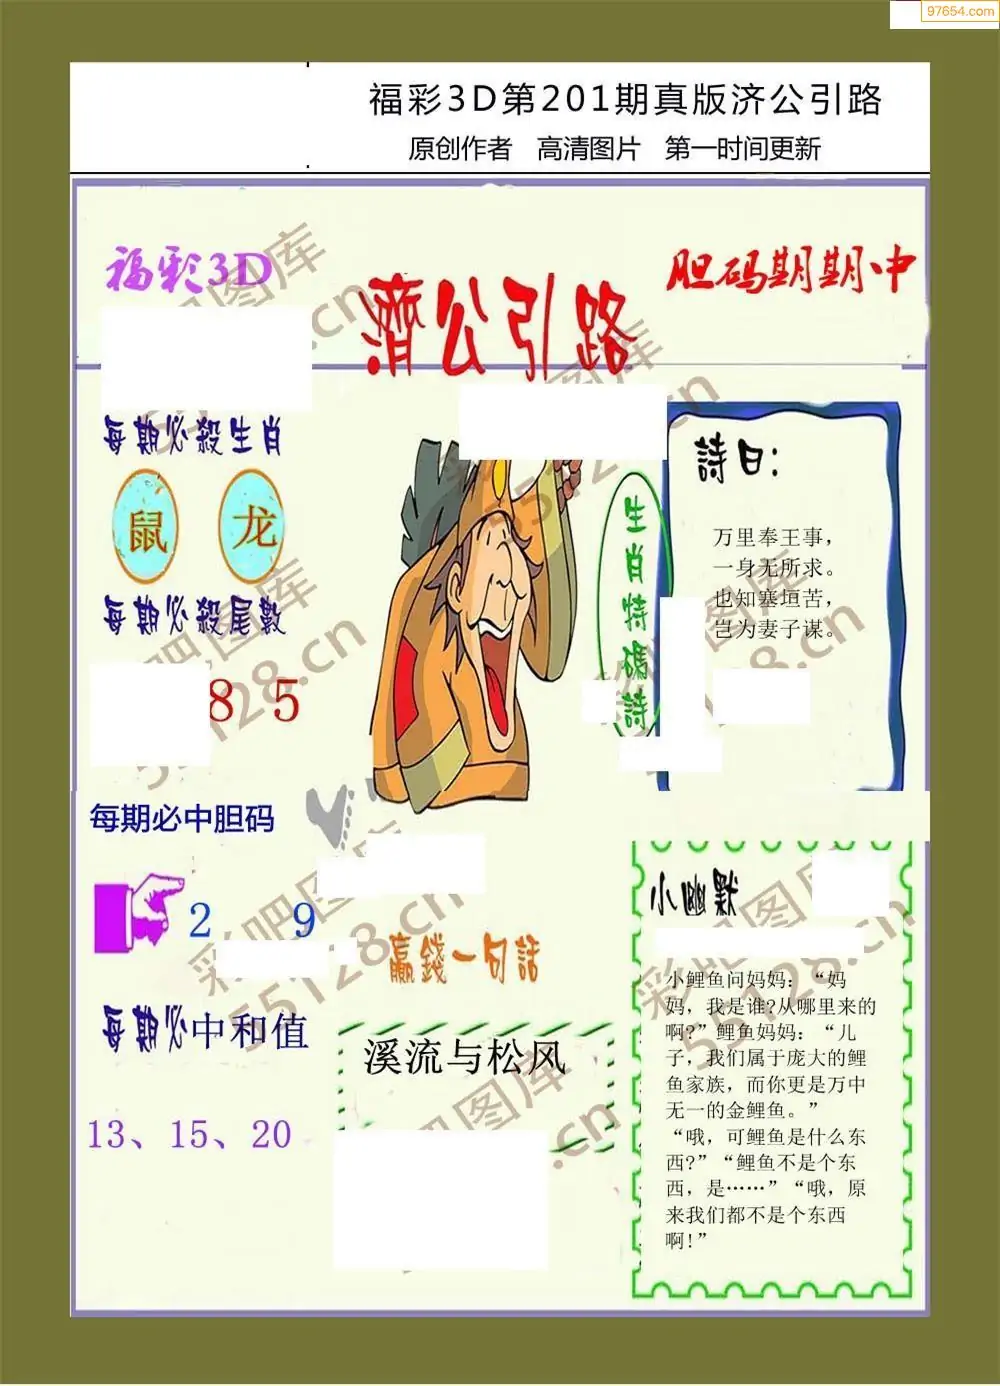 97654.com
福彩3D第201期真版济公引路
原创作者 高清图片 第一时间更新
福彩3D
胆码期期中
濟公引路
每期必殺生肖
鼠 龙
每期必殺尾數
8 5
每期必中胆码
2 9
每期必中和值
13、15、20
生肖特碼詩
詩曰:
万里奉王事，
一身无所求。
也知塞垣苦，
岂为妻子谋。
贏錢一句話
溪流与松风
小幽默
小鲤鱼问妈妈：“妈
妈，我是谁?从哪里来的
啊?”鲤鱼妈妈：“儿
子，我们属于庞大的鲤
鱼家族，而你更是万中
无一的金鲤鱼。”
“哦，可鲤鱼是什么东
西?”“鲤鱼不是个东
西，是……”“哦，原
来我们都不是个东西
啊!”
彩吧图库
55128.cn